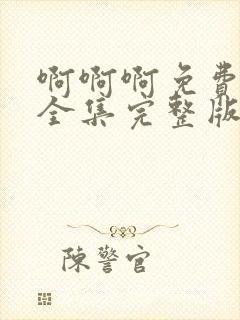 啊啊啊免费
全集完整版
陳警官